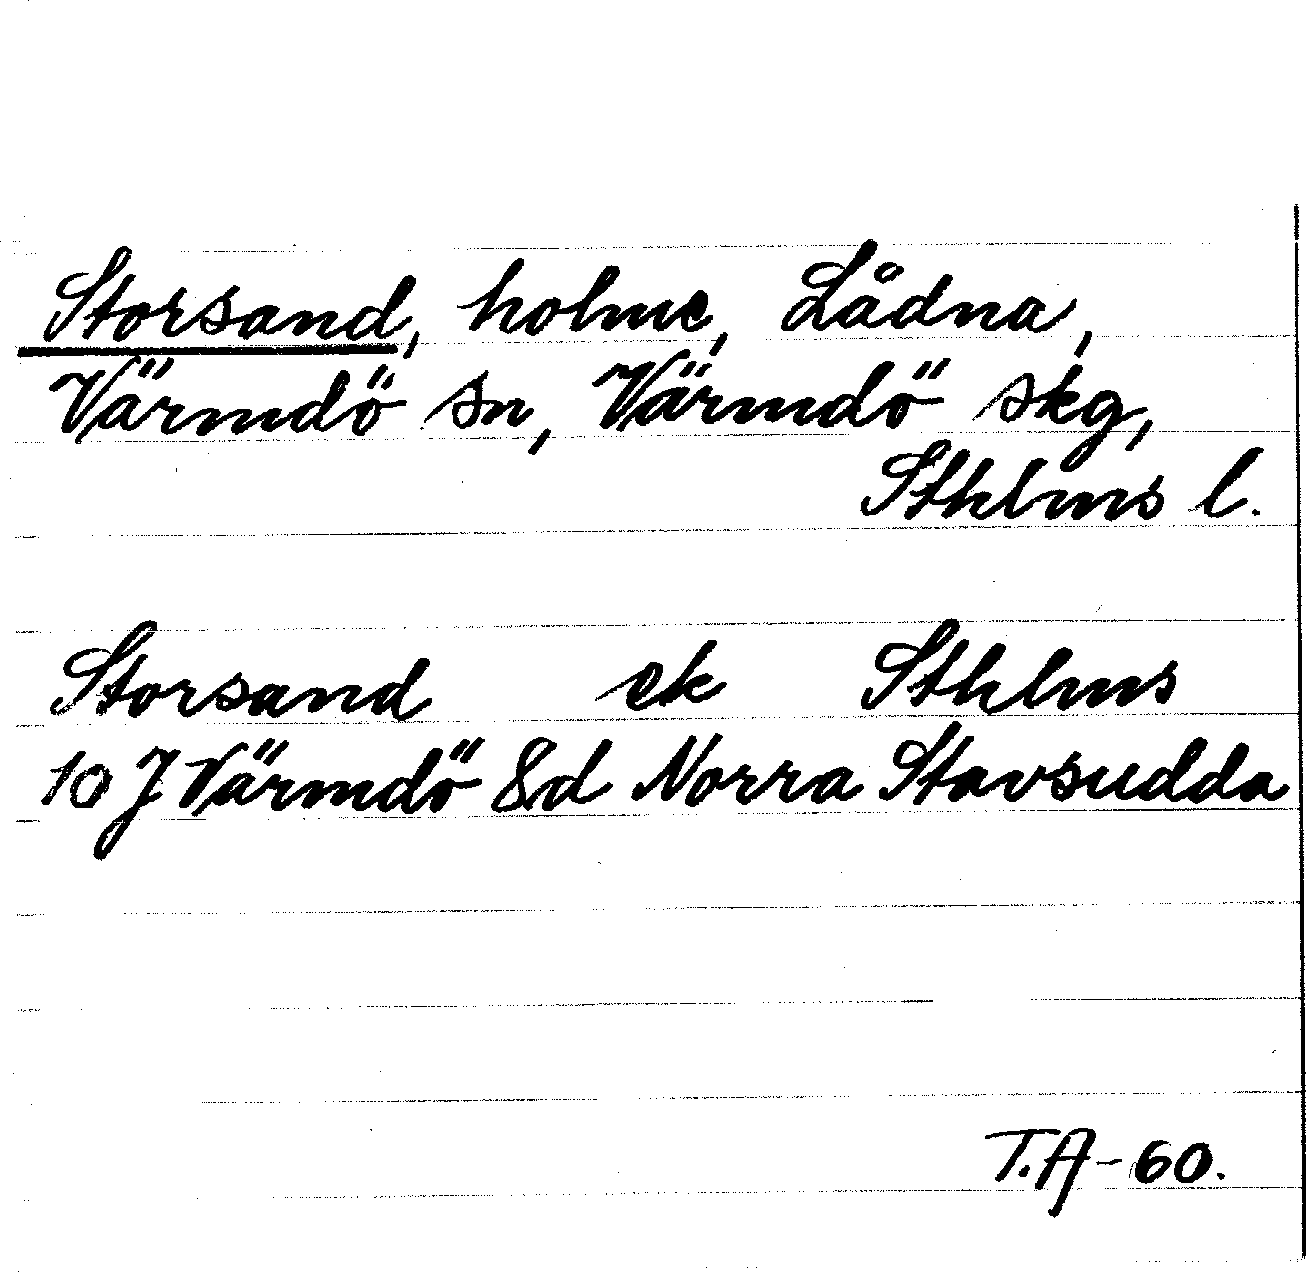 Storsand, holme, Lådna,
Värmdö sn, Värmdö skg,
Sthlms l.
Storsand ek Sthlms
10 J Värmdö 8d Norra Stavsudda
T.A-60.